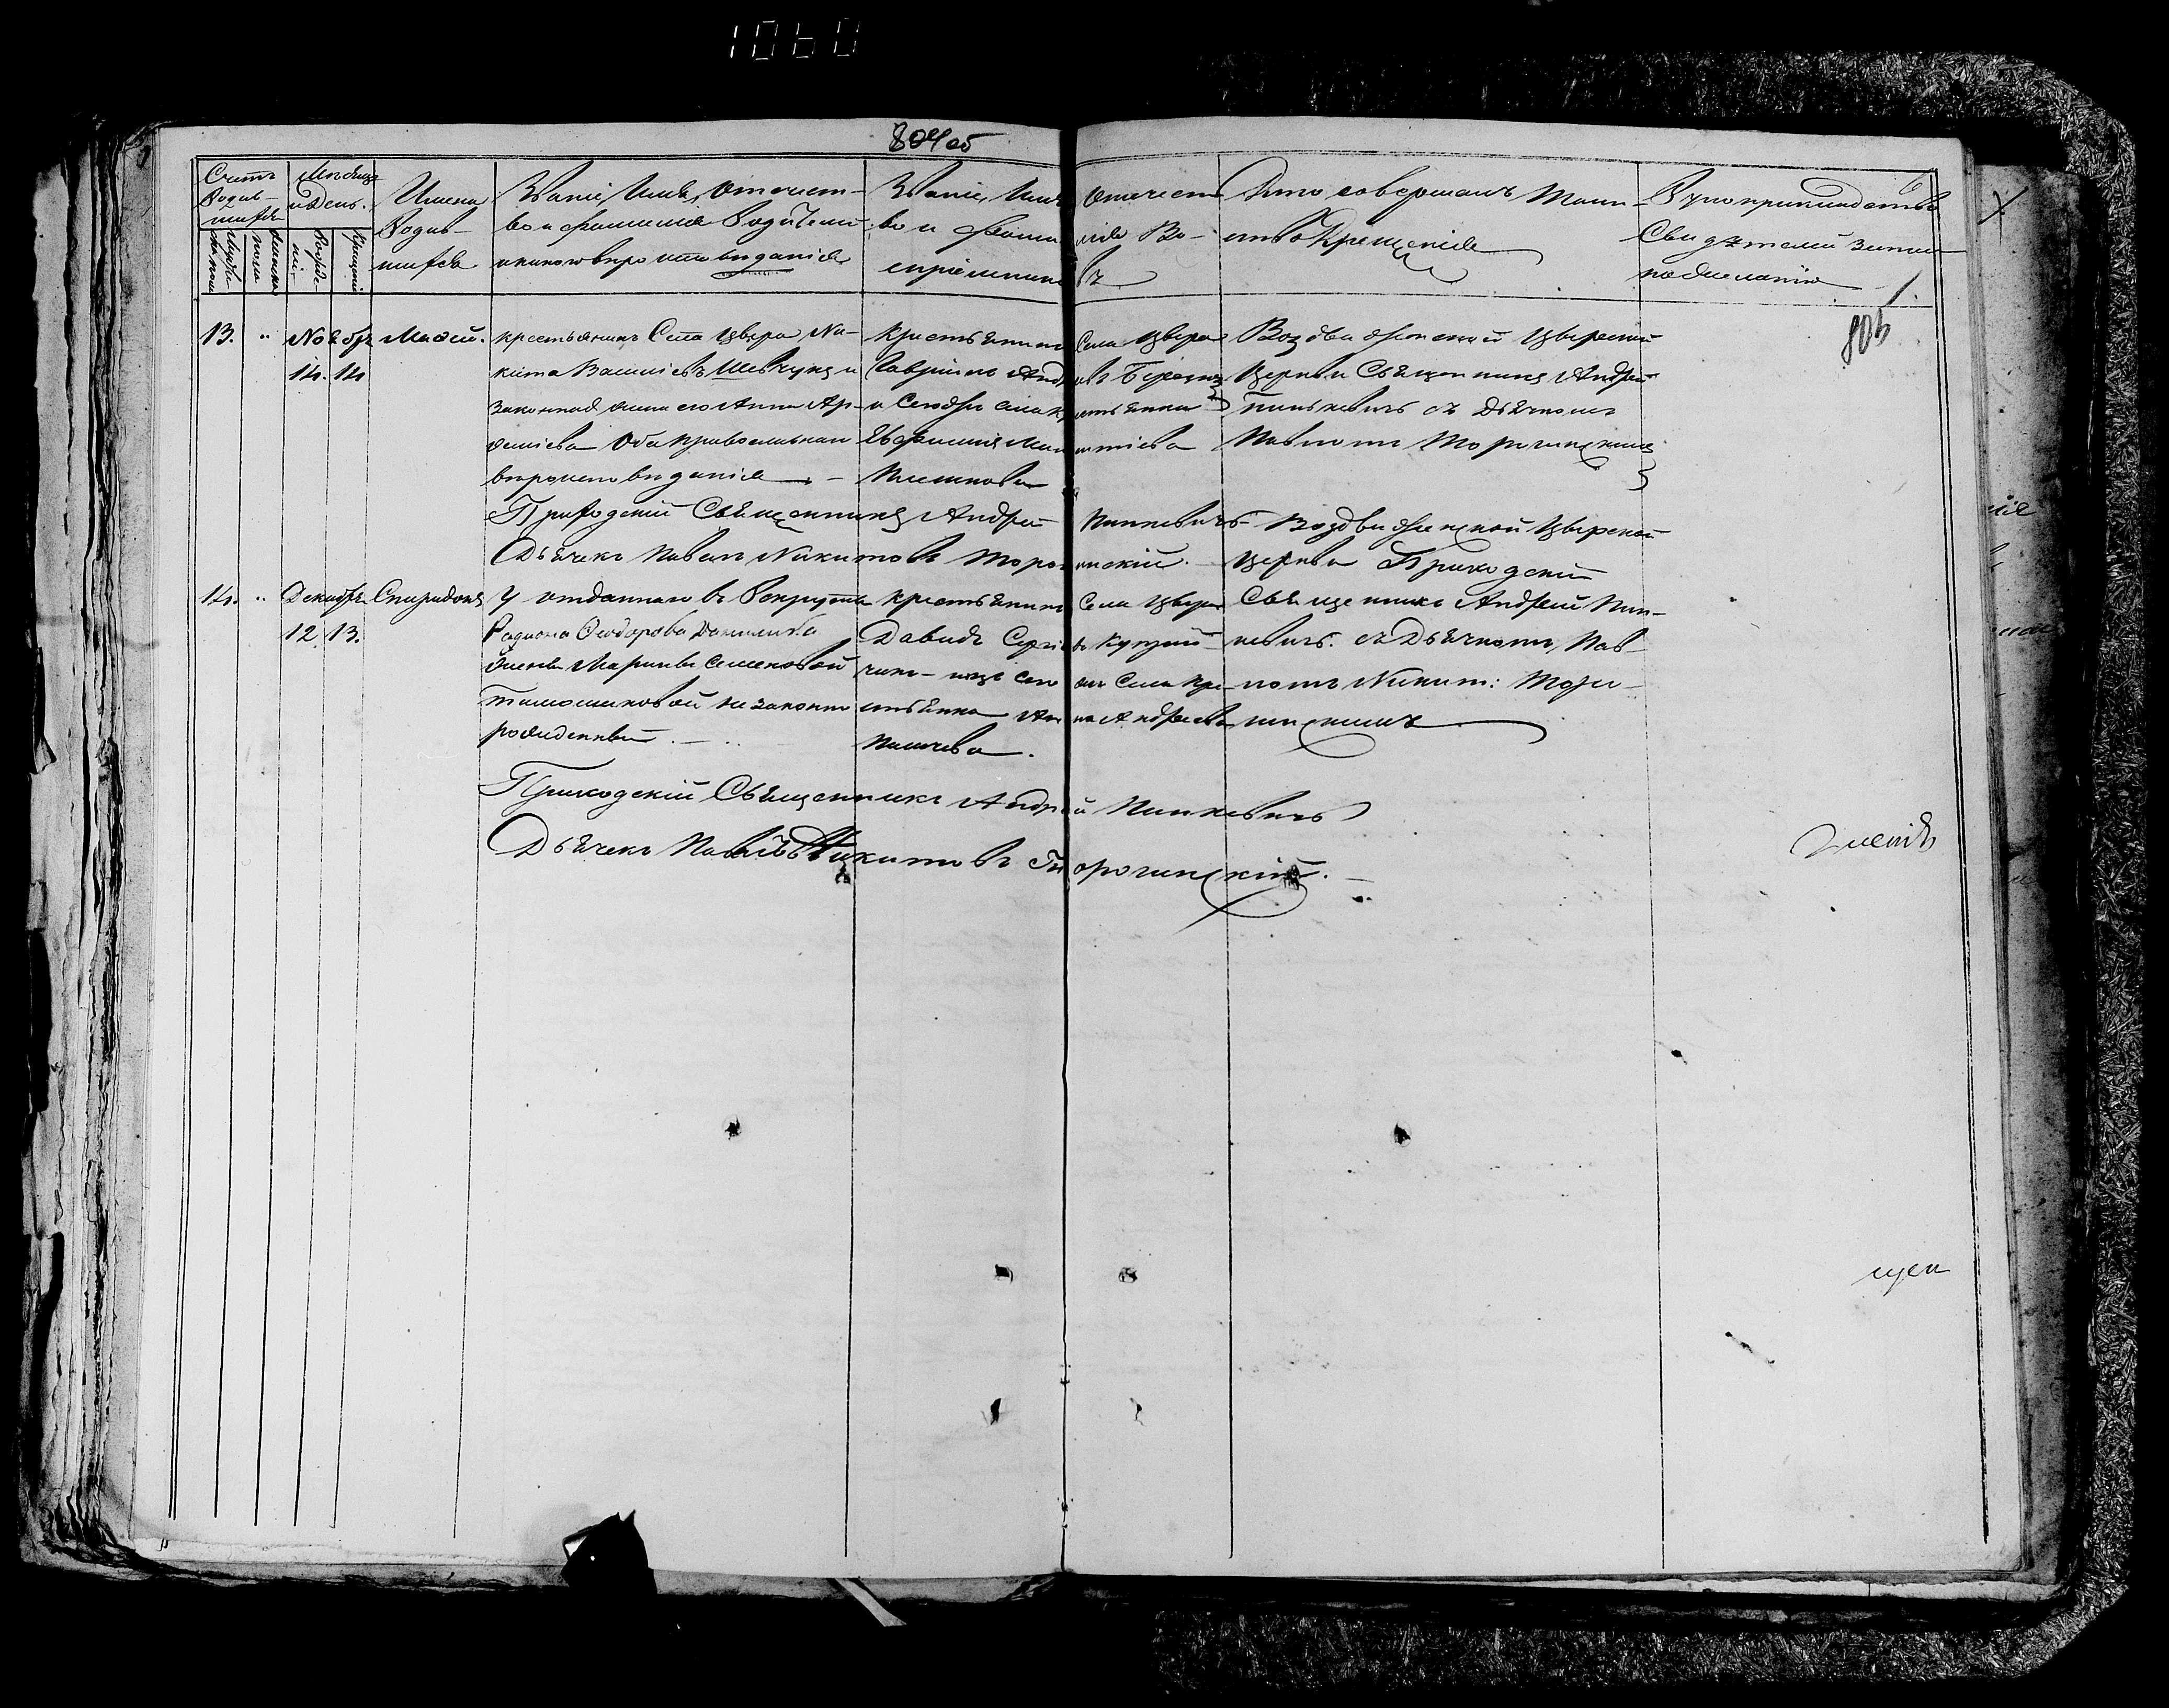 1060
804об
Счетъ Родив-шихся
Мѣсяцъ и День.
Мужеска пола
Женска пола
Рожденія
Крещенія
Имена Родив-шихся
Званіе, Имя, Отечест-во и фамилія Родителей и какого вѣроисповѣданія
Званіе, Имя Отечест-во и фамилія Во-спріемниковъ
Кто совершалъ Таин-ство Крещенія
Рукоприкладство Свидѣтелей записи по желанію
805
13. " Ноябрь 14. 14 Мовсей.
крестьянинъ Села Цвѣра Ни-
кита Василіевъ Шевчукъ и
законная жена его Анна Ар-
оба православнаго
вѣроисповѣданія
крестьянинъ Села Цвѣра
Гавріилъ
и Сегожъ села крестьянка
Евфимія
Воздвиженской Цвѣрской
Церкви Священникъ Андрей
Пинькевичъ съ Дьячкомъ
Павломъ Торогинскимъ
Приходскій Священникъ Андрей Пинкевичъ
Дьячекъ Павелъ Никитовъ Торогинскій.
14. " Декабрь 12. 13. Спиридонъ
У отданнаго въ Рекруты
Родиона Феодорова Данилюка
жены Марины Семеновой
Тимошиковой не законно
рожденный
крестьянинъ Села Цвѣра
Давидъ
Села Кре-
стьянка Анна Андреева
Воздвиженской Цвѣрской
церкви Приходскій
Священникъ Андрей Пин-
кевичъ. съ Дьячкомъ Пав-
ломъ Никит: Торо-
гинскимъ
Приходскій Священникъ Андрей Пинкевичъ
Дьячекъ Павелъ Никитовъ Торогинскій.